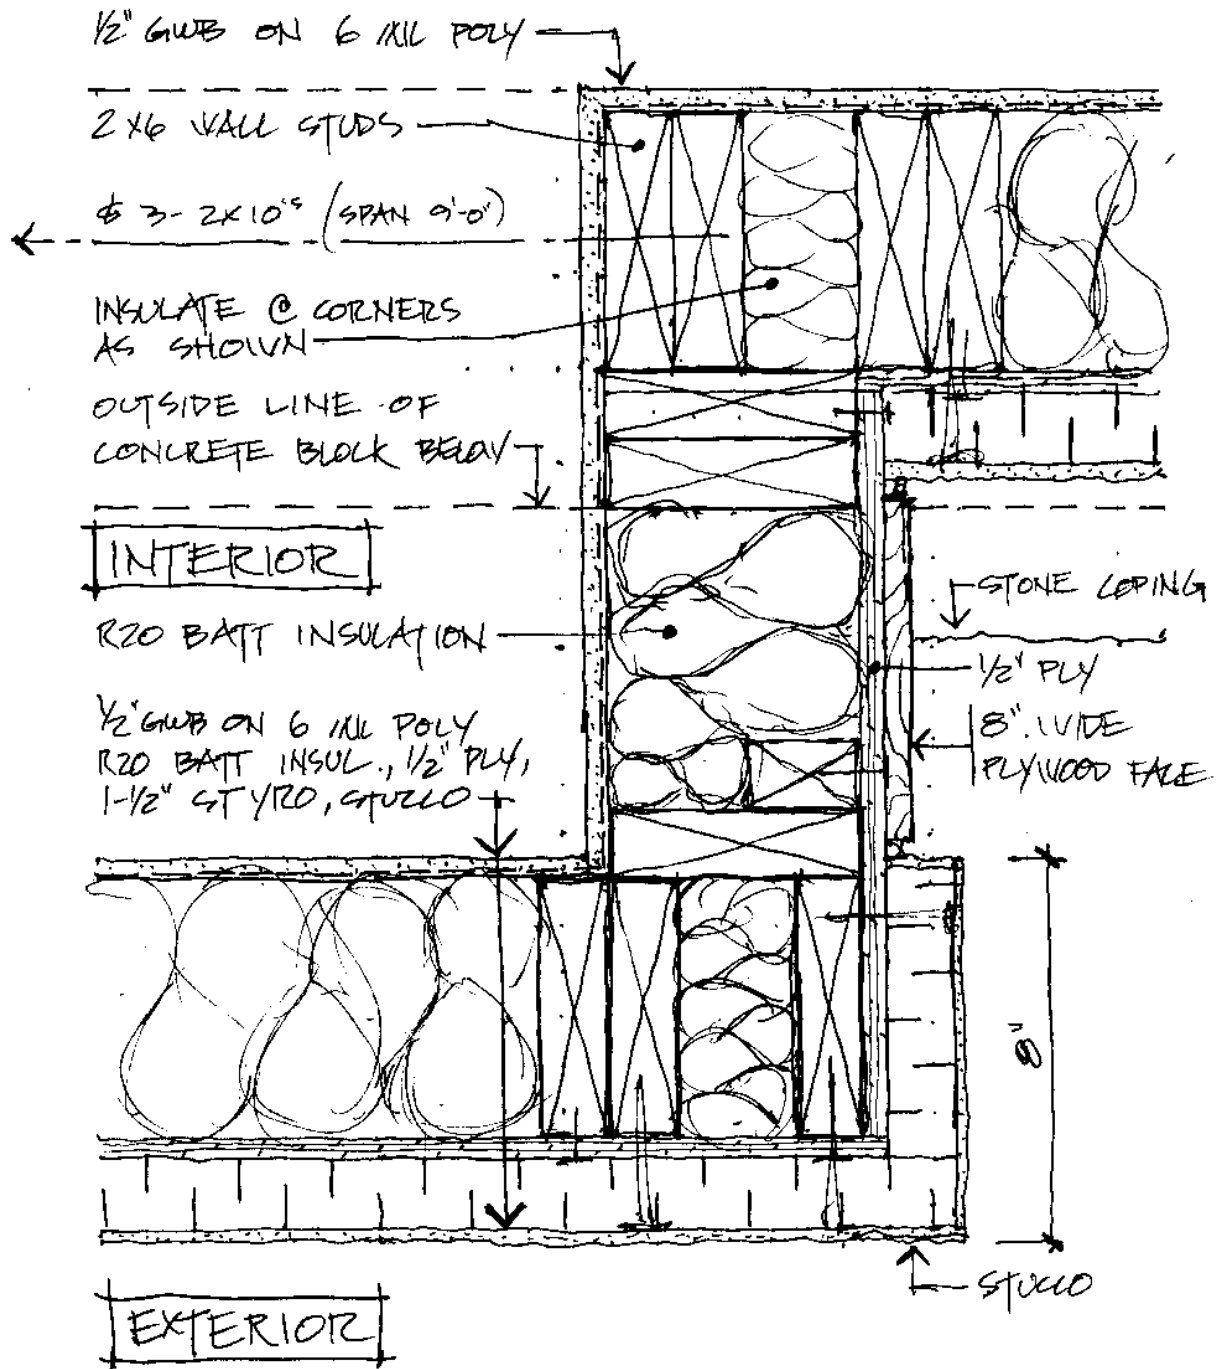 1/2" GWB ON 6 MIL POLY
2X6 WALL STUDS
& 3-2X10'S (SPAN 9'-0")
INSULATE @ CORNERS
AS SHOWN
OUTSIDE LINE OF
CONCRETE BLOCK BELOW
INTERIOR
STONE COPING
R20 BATT INSULATION
1/2" PLY
1/2" GWB ON 6 MIL POLY
R20 BATT INSUL., 1/2" PLY,
1-1/2" STYRO, STUCCO
8" WIDE
PLYWOOD FACE
8"
STUCCO
EXTERIOR